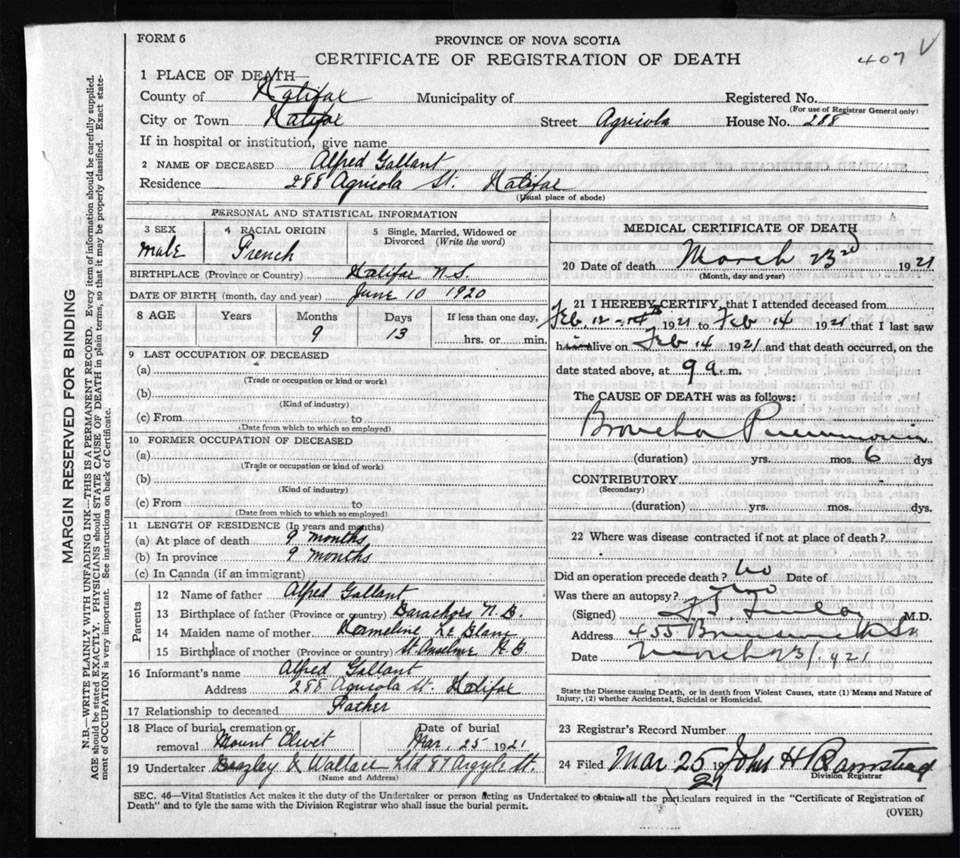 FORM 6
PROVINCE OF NOVA SCOTIA
CERTIFICATE OF REGISTRATION OF DEATH
407
1 PLACE OF DEATH—
County of Halifax Municipality of Registered No.
(For use of Registrar General only)
City or Town Halifax Street Agricola House No. 288
If in hospital or institution, give name
2 NAME OF DECEASED Alfred Gallant
Residence 288 Agricola St. Halifax
(Usual place of abode)
PERSONAL AND STATISTICAL INFORMATION
3 SEX male
4 RACIAL ORIGIN French
5 Single, Married, Widowed or Divorced (Write the word)
BIRTHPLACE (Province or Country) Halifax N.S.
DATE OF BIRTH (month, day and year) June 10 1920
8 AGE Years Months Days If less than one day,
9 13 hrs. or min.
9 LAST OCCUPATION OF DECEASED
(a)
(Trade or occupation or kind or work)
(b)
(Kind of industry)
(c) From to
(Date from which to which so employed)
10 FORMER OCCUPATION OF DECEASED
(a)
(Trade or occupation or kind of work)
(b)
(Kind of industry)
(c) From to
(Date from which to which so employed)
11 LENGTH OF RESIDENCE (In years and months)
(a) At place of death 9 months
(b) In province 9 months
(c) In Canada (if an immigrant)
Parents
12 Name of father Alfred Gallant
13 Birthplace of father (Province or country) Barachois N.B.
14 Maiden name of mother Le Blanc
15 Birthplace of mother (Province or country) St. Anselme N.B.
16 Informant's name Alfred Gallant
Address 288 Agricola St. Halifax
17 Relationship to deceased Father
18 Place of burial, cremation or removal Mount Olivet
Date of burial Mar. 25 1921
19 Undertaker & Wallace Ltd 87 Argyle St.
(Name and Address)
MEDICAL CERTIFICATE OF DEATH
20 Date of death March 23rd 1921
(Month, day and year)
21 I HEREBY CERTIFY, that I attended deceased from
Feb. 12 1921 to Feb 14 1921 that I last saw
him alive on Feb 14 1921 and that death occurred, on the
date stated above, at 9 a. m.
The CAUSE OF DEATH was as follows:
Broncho Pneumonia
(duration) yrs. mos. 6 dys
CONTRIBUTORY
(Secondary)
(duration) yrs. mos. dys.
22 Where was disease contracted if not at place of death?
Did an operation precede death? no Date of
Was there an autopsy? no
(Signed) M.D.
Address 455 Brunswick St
Date March 23/1921
State the Disease causing Death, or in death from Violent Causes, state (1) Means and Nature of
Injury, (2) whether Accidental, Suicidal or Homicidal.
23 Registrar's Record Number
24 Filed Mar 25 1921 John H Barnstead
Division Registrar
SEC. 46—Vital Statistics Act makes it the duty of the Undertaker or person acting as Undertaker to obtain all the particulars required in the "Certificate of Registration of
Death" and to fyle the same with the Division Registrar who shall issue the burial permit.
(OVER)
MARGIN RESERVED FOR BINDING
N.B.—WRITE PLAINLY WITH UNFADING INK—THIS IS A PERMANENT RECORD. Every item of information should be carefully supplied.
AGE should be stated EXACTLY. PHYSICIANS should STATE CAUSE OF DEATH in plain terms, so that it may be properly classified. Exact statement of OCCUPATION is very important. See instructions on back of Certificate.